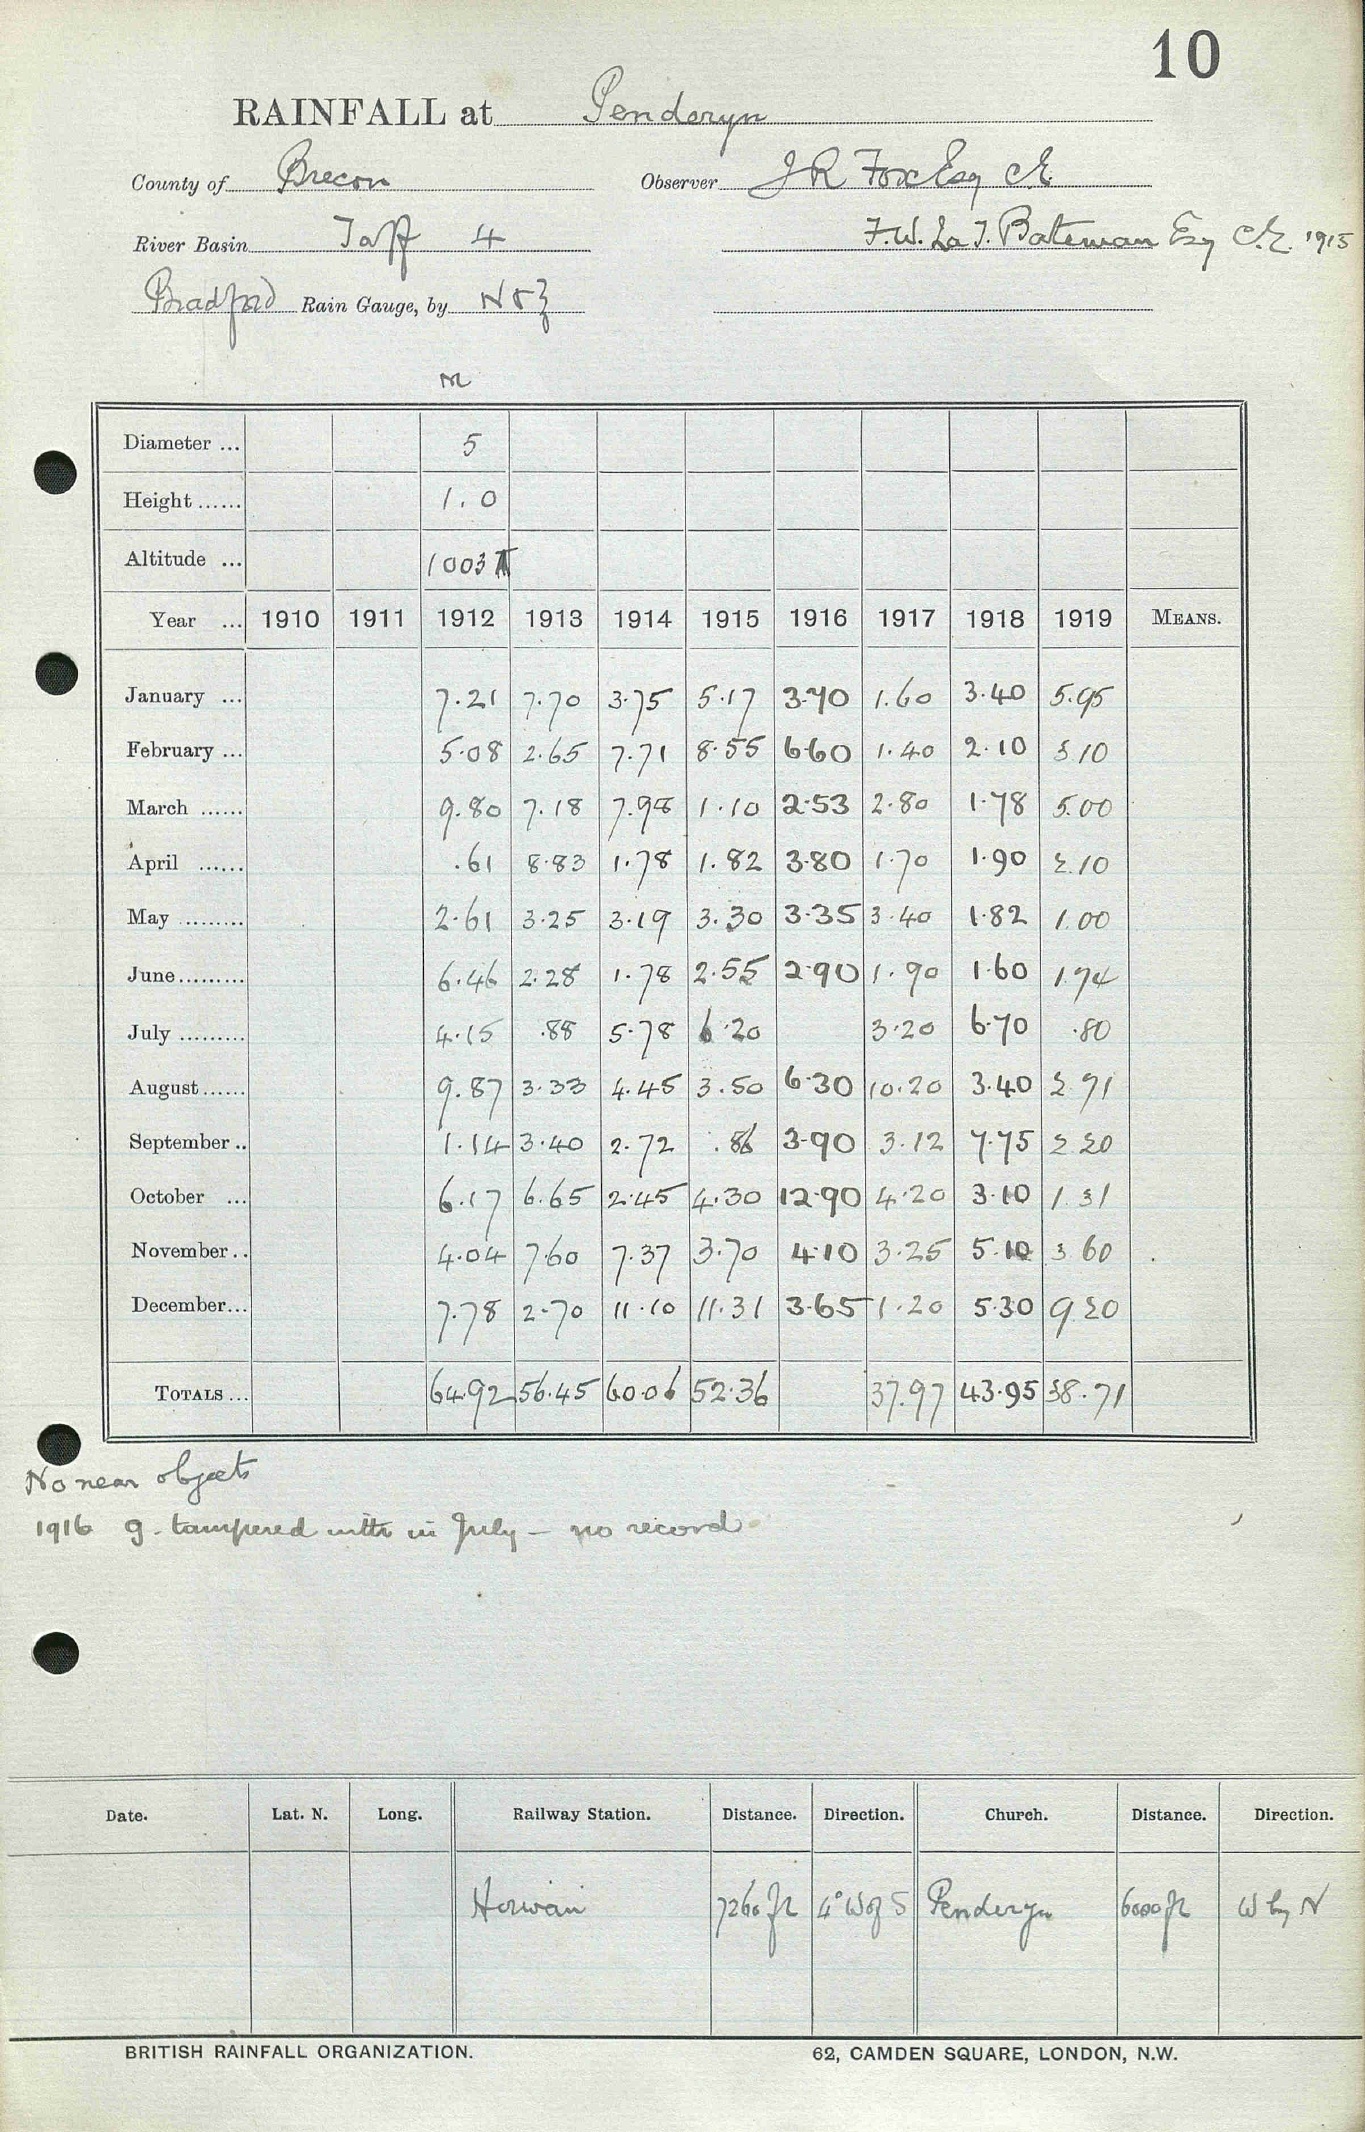 10
RAINFALL at Penderyn
County of Brecon Observer J R Fox Esq C.E.
River Basin Taff 4 F. W. La T. Bateman Esq C.E. 1915
Bradford Rain Gauge, by N & Z
m
Diameter ... 5
Height ...... 1.0
Altitude ... 1003
Year ... 1910 1911 1912 1913 1914 1915 1916 1917 1918 1919 MEANS.
January ... 7.21 7.70 3.75 5.17 3.70 1.60 3.40 5.95
February ... 5.08 2.65 7.71 8.55 6.60 1.40 2.10 3.10
March ...... 9.80 7.18 7.98 1.10 2.53 2.80 1.78 5.00
April ...... .61 8.83 1.78 1.82 3.80 1.70 1.90 2.10
May ......... 2.61 3.25 3.19 3.30 3.35 3.40 1.82 1.00
June ......... 6.46 2.28 1.78 2.55 2.90 1.90 1.60 1.74
July ......... 4.15 .88 5.78 6.20 3.20 6.70 .80
August ...... 9.87 3.33 4.45 3.50 6.30 10.20 3.40 2.71
September .. 1.14 3.40 2.72 .86 3.90 3.12 7.75 2.20
October ... 6.17 6.65 2.45 4.30 12.90 4.20 3.10 1.31
November .. 4.04 7.60 7.37 3.70 4.10 3.25 5.10 3.60
December ... 7.78 2.70 11.10 11.31 3.65 1.20 5.30 9.20
TOTALS ... 64.92 56.45 60.06 52.36 37.97 43.95 38.71
No near objects
1916 g. tampered with in July — no record
Date. Lat. N. Long. Railway Station. Distance. Direction. Church. Distance. Direction.
Hirwain 7260 ft 4° W of S Penderyn 6000 ft W by N
BRITISH RAINFALL ORGANIZATION. 62, CAMDEN SQUARE, LONDON, N.W.